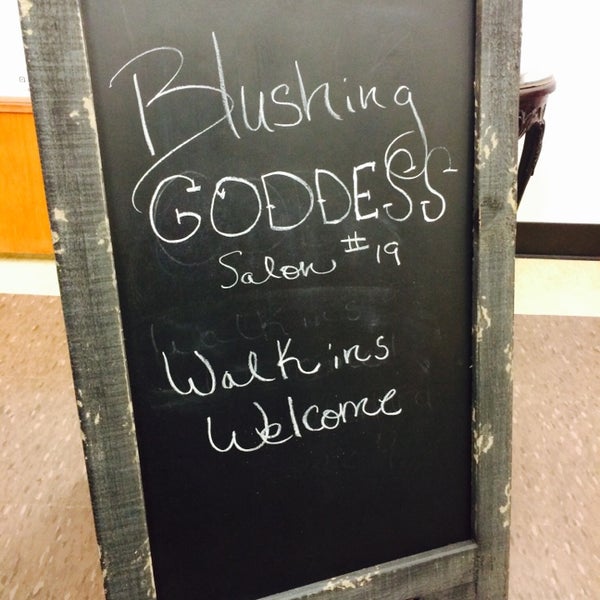 Blushing
GODDESS
Salon #19
Walk ins
Welcome